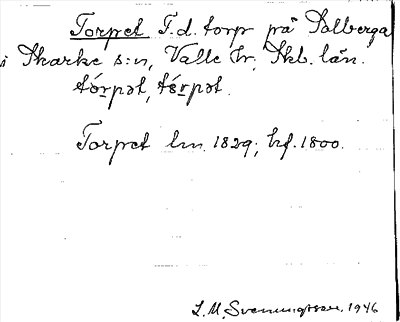 Torpet F.d. torp på Solberga
i Skarke s:n, Valle hr, Skb. län.
tórpət, tórpət.
Torpet lm. 1829; hf. 1800.
L.M. Svenungsson, 1946